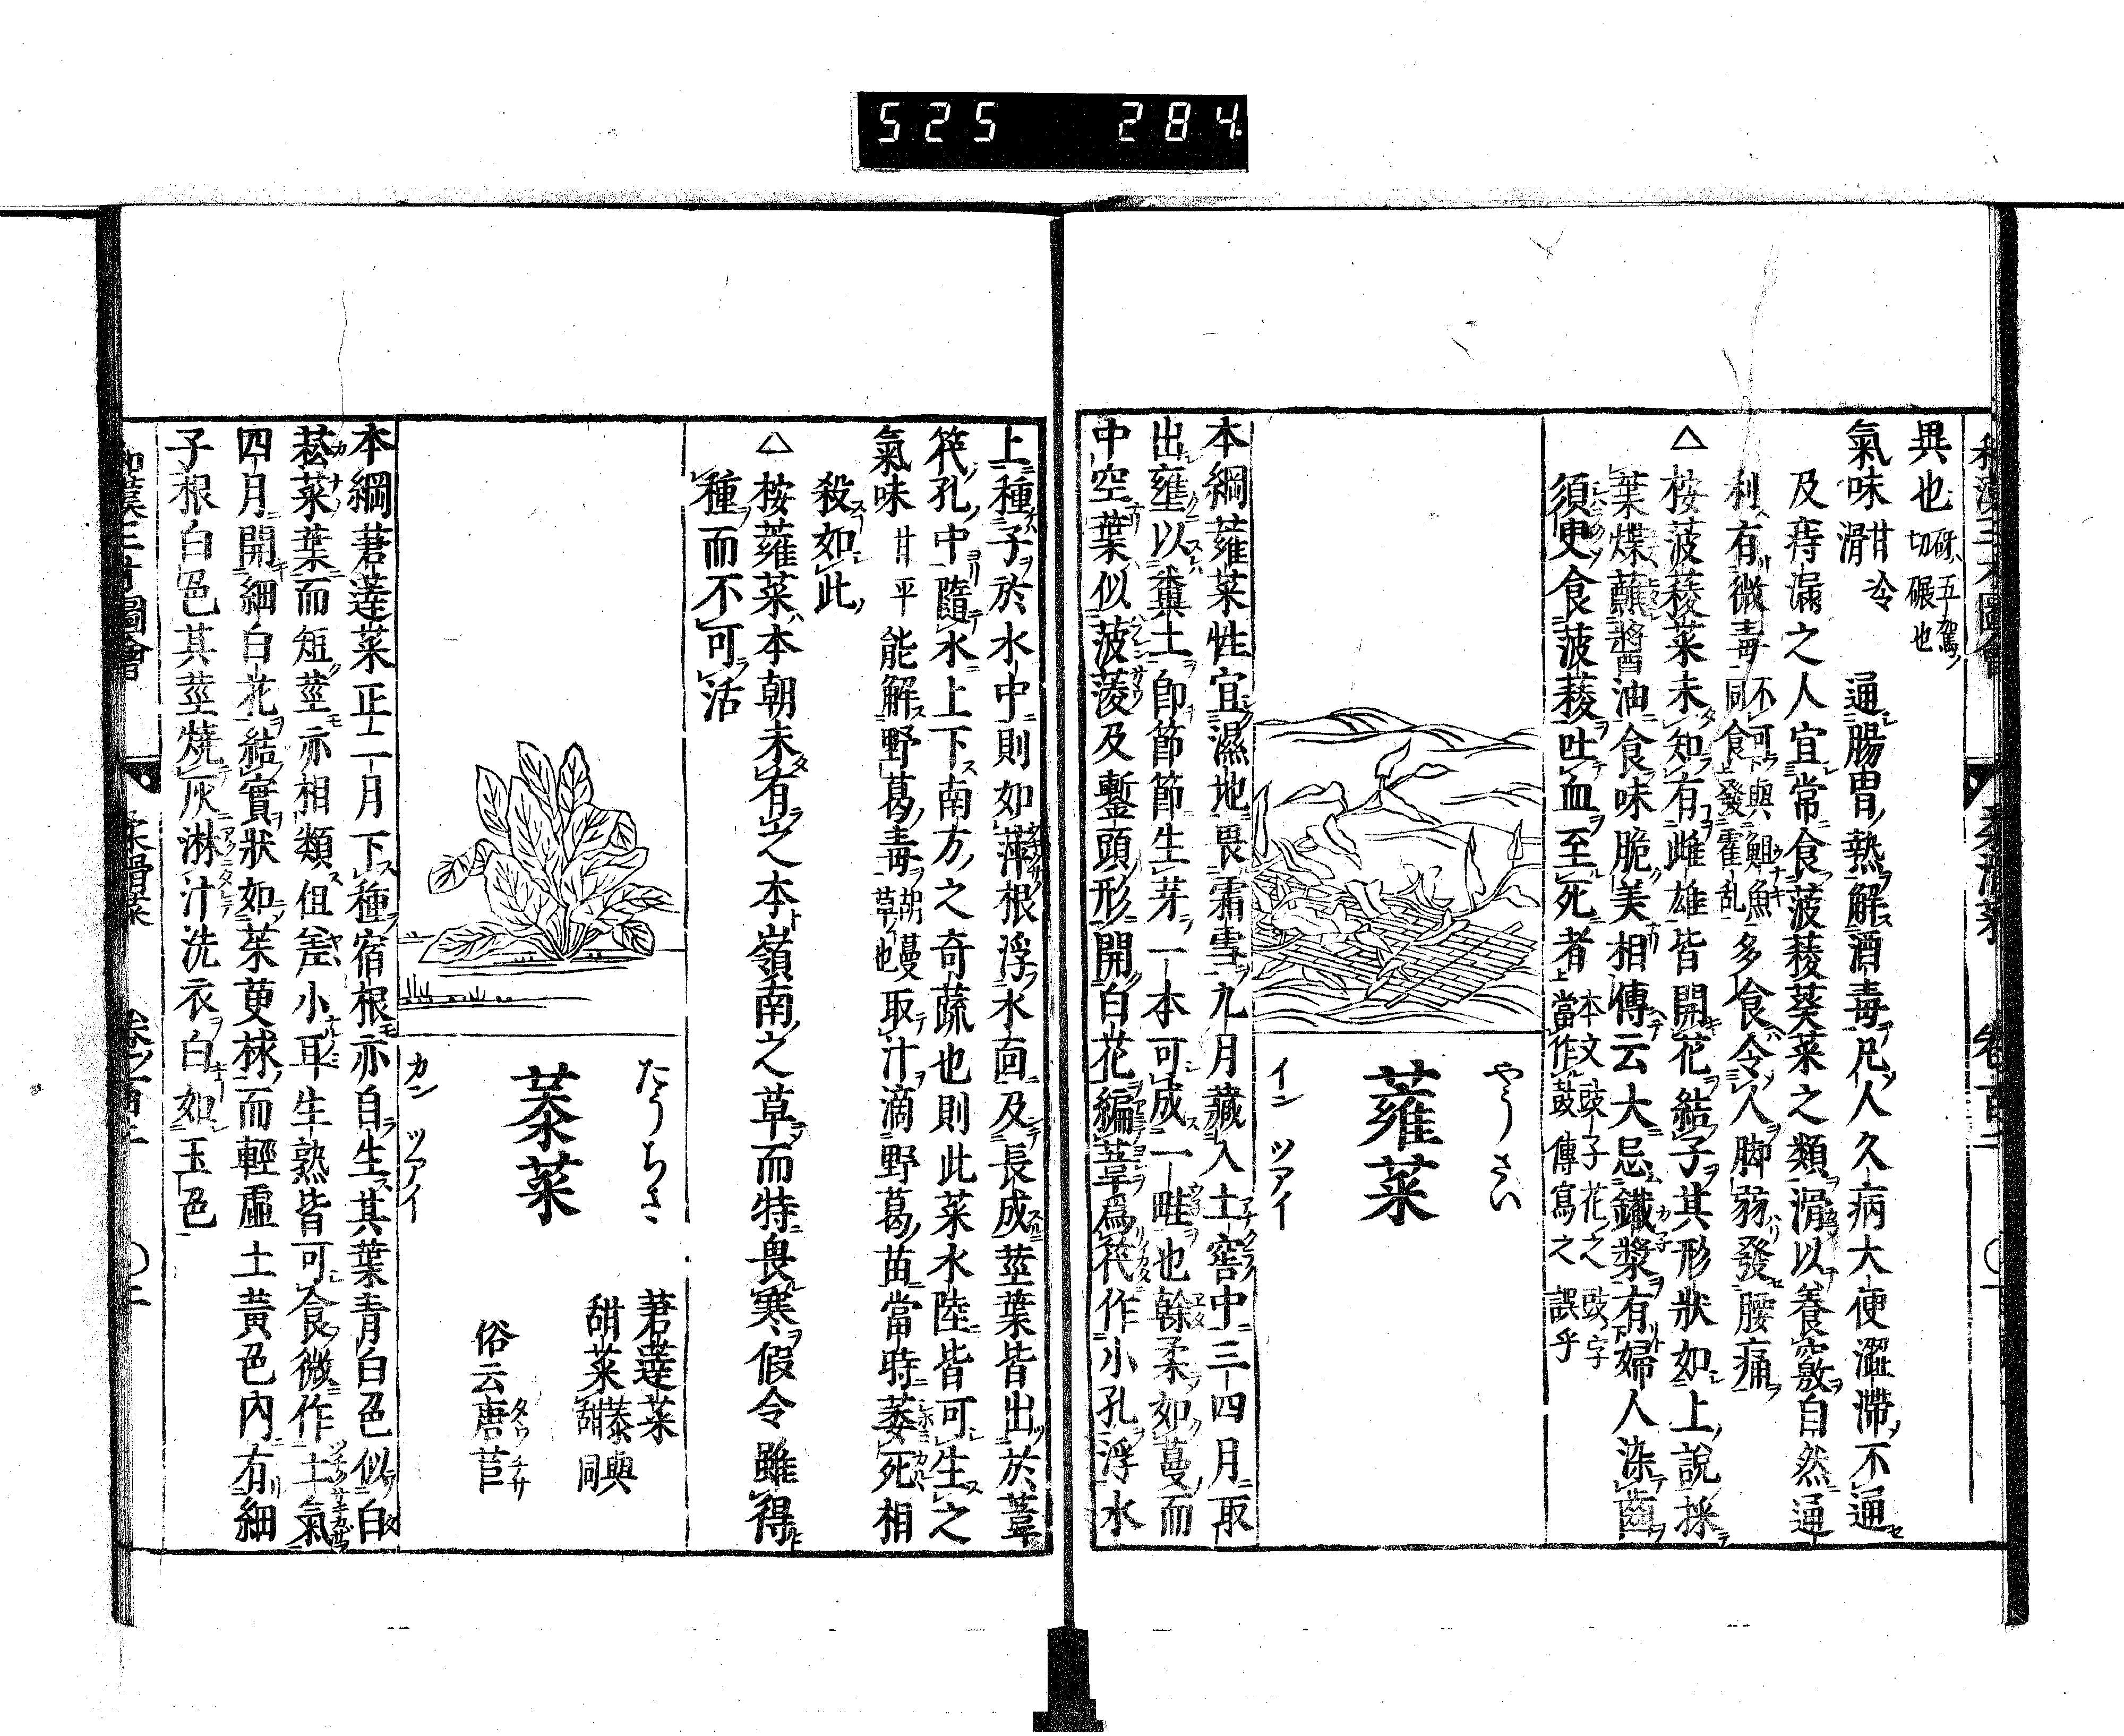 525 284
異也 砑五駕切碾也
氣味 甘冷滑 通腸胃熱解酒毒凡人久病大便澀滯不通
及痔漏之人宜常食菠薐葵菜之類滑以養竅自然通
利有微毒 不可與䱇魚同食發霍乱 多食令人脚弱發腰痛
△ 桉菠薐菜未知有雌雄皆開花結子其形狀如上說採
葉煠蘸醬油食味脆美相傳云大忌鐵漿有婦人染齒
須更食菠薐吐血至死者 本文豉子花之豉字當作鼓傳寫之誤乎
やうさい
蕹菜
イン ツアイ
本綱蕹菜性宜濕地畏霜雪九月藏入土窖中三四月取
出壅以糞土卽節節生芽一本可成一畦也幹柔如蔓而
中空葉似菠薐及鏨頭形開白花編葦爲筏作小孔浮水
上種子於水中則如萍根浮水面及長成莖葉皆出於葦
筏孔中隨水上下南方之奇蔬也則此菜水陸皆可生之
氣味 甘平 能解野葛毒 胡蔓草也 取汁滴野葛苗當時萎死相
殺如此
△ 桉蕹菜本朝未有之本嶺南之草而特畏寒假令雖得
種而不可活
たうちさ
菾菜
カン ツアイ
莙薘菜
甜菜 菾與甜同
俗云唐苣 タウチサ
本綱莙薘菜正二月下種宿根亦自生其葉青白色似白
菘菜葉而短莖亦相類但差小耳生熟皆可食微作土氣
四月開細白花結實狀如茱萸梂而輕虛土黃色內有細
子根白色其莖燒灰淋汁洗衣白如玉色